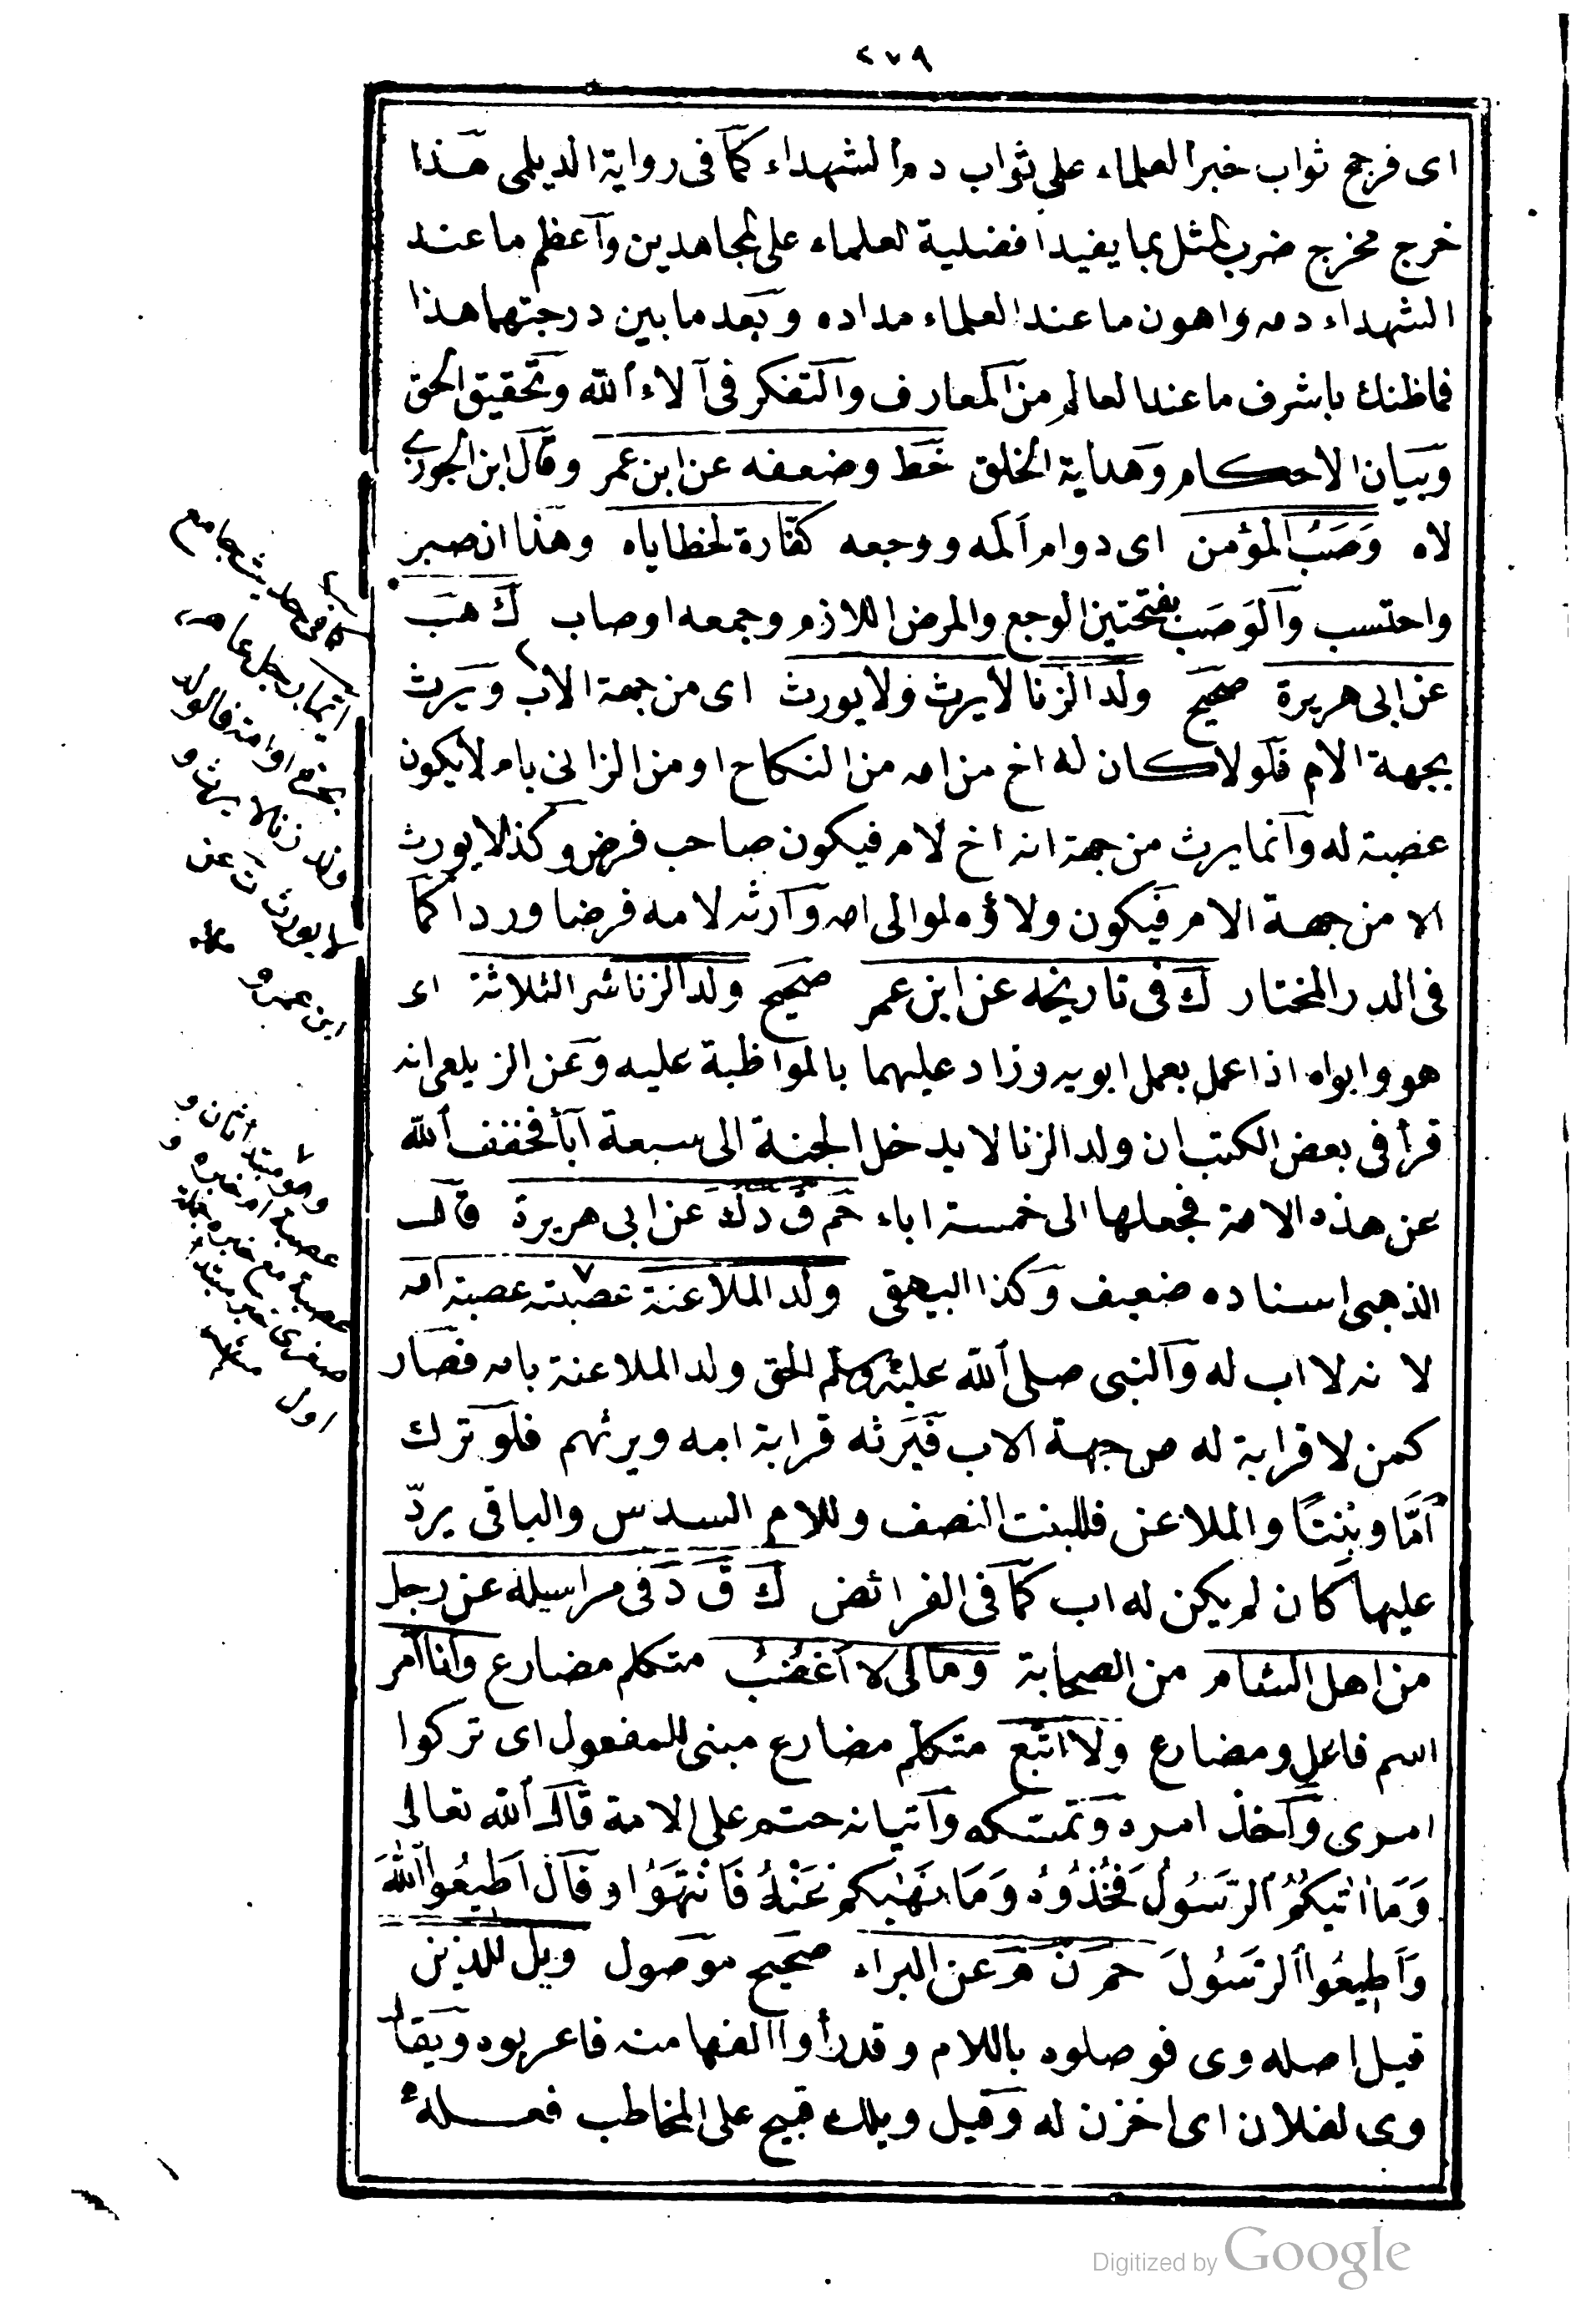 ٢٧٩
اى فرجح ثواب خبر العلماء على ثواب دم الشهداء كما فى رواية الديلمى هذا
خرج مخرج ضرب المثل بما يفيد افضلية العلماء على المجاهدين وأعظم ما عند
الشهداء دمه واهون ما عند العلماء مداده وبعد ما بين درجتهما هذا
فما ظنك باشرف ما عند العالم من المعارف والتفكر فى آلاء الله وتحقيق الحق
وبيان الاحكام وهداية الخلق خط وضعفه عن ابن عمر وقال ابن الجوزى
لاه وَصَبُ المؤمن اى دوام ألمه ووجعه كفارة لخطاياه وهذا ان صبر
واحتسب والوَصَب بفتحتين الوجع والمرض اللازم وجمعه اوصاب ك هب
عن ابى هريرة صحيح ولد الزنا لا يرث ولا يورث اى من جهة الاب ويرث
بجهة الام فلو لا كان له اخ من امه من النكاح او من الزانى بام لا يكون
عصبة له وانما يرث من جهة انه اخ لام فيكون صاحب فرض وكذا لا يورث
الا من جهة الام فيكون ولاؤه لموالى امه وارثه لامه فرضا وردا كما
فى الدر المختار ك فى تاريخه عن ابن عمر صحيح ولد الزنا شر الثلاثة اى
هو وابواه اذا عمل بعمل ابويه وزاد عليهما بالمواظبة عليه وعن الزيلعى انه
قرأ فى بعض الكتب ان ولد الزنا لا يدخل الجنة الى سبعة آباء فخفف الله
عن هذه الامة فجعلها الى خمسة اباء حم ق د ك عن ابى هريرة قال
الذهبى اسناده ضعيف وكذا البيهقى ولد الملاعنة عصبته عصبة امه
لانه لا اب له والنبى صلى الله عليه وسلم الحق ولد الملاعنة بامه فصار
كمن لا قرابة له من جهة الاب فيرثه قرابة امه ويرثهم فلو ترك
اُمًّا وبِنتًا والملاعن فللبنت النصف وللام السدس والباقى يردّ
عليها كان لم يكن له اب كما فى الفرائض ك ق د فى مراسيله عن رجل
من اهل الشام من الصحابة ومالى لا أغضَبُ متكلم مضارع وانا آمر
اسم فاعل ومضارع ولا اتبع متكلم مضارع مبنى للمفعول اى تركوا
امرى وأخذ امره وتمسكه واتيانه حتم على الامة قال الله تعالى
وَمَا اٰتٰيكُمُ الرَّسُولُ فَخُذُوُه وَمَا نَهٰيكم عَنْهُ فَانْتَهَوُا وقال اَطِيعُوا اللهَ
وَاَطِيعُوا الرَّسُولَ حم ن م عن البراء صحيح موصول ويل للذين
قيل اصله وى فوصلوه باللام وقدرأوا الفها منه فاعربوه ويقال
وى لفلان اى اخزن له وقيل ويلك قبيح على المخاطب فعله
كما فى حديث جامع
ايما رجل عاهر
بحرة او امة فالولد
ولد زنا لا يرث و
لا يورث ت عن
ابن عمرو
وهو مبتدأ ثان و
عصبة امه خبره و
عصبة مع خبره جملة
صغرى خبر مبتدأ
اول
Digitized by Google